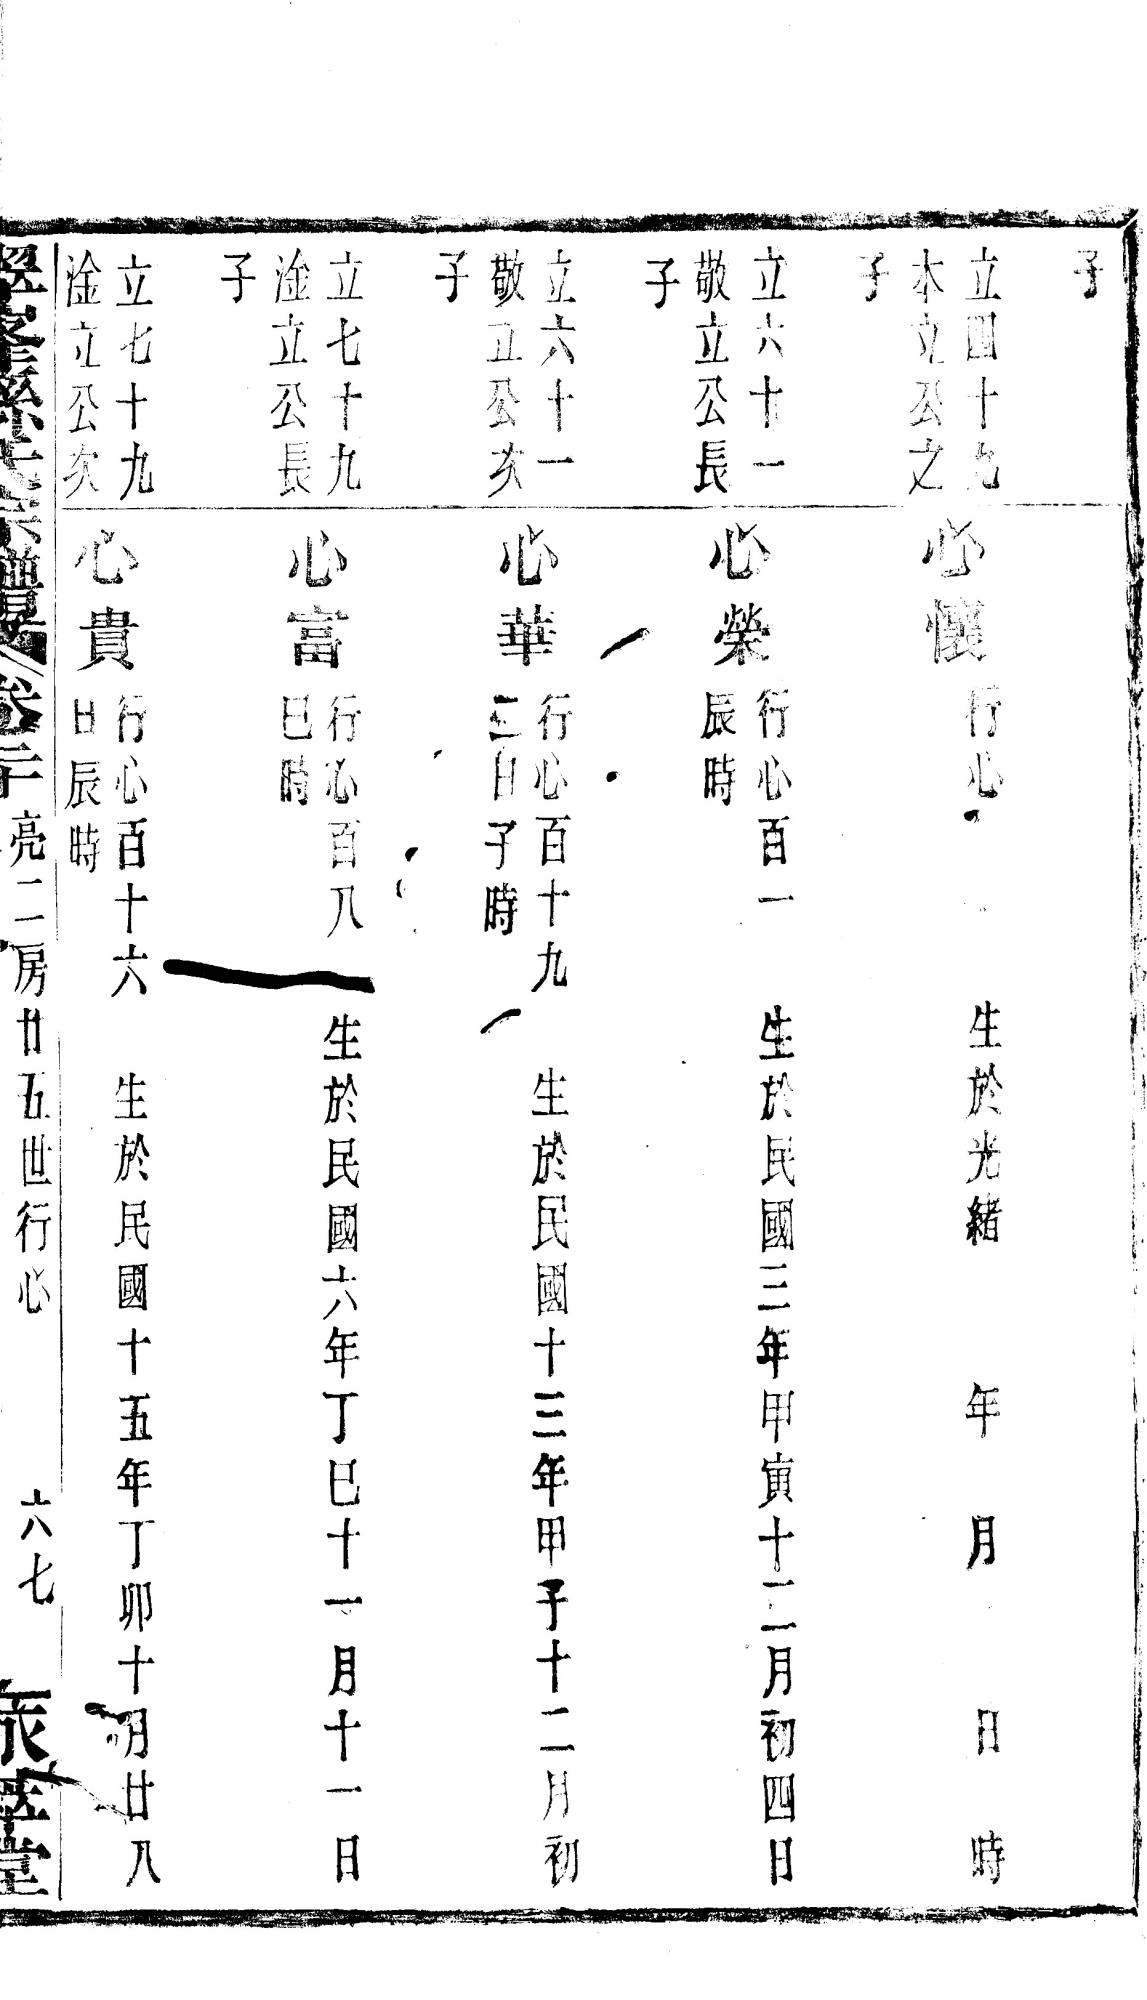 子
立四十九
本立公之
子
心懷
行心
生於光緒 年 月 日 時
立六十一
敬立公長
子
心榮
行心百一 生於民國三年甲寅十二月初四日
辰時
立六十一
敬立公次
子
心華
行心百十九 生於民國十三年甲子十二月初
三日子時
立七十九
淦立公長
子
心富
行心百八 生於民國六年丁巳十一月十一日
巳時
立七十九
淦立公次
心貴
行心百十六 生於民國十五年丁卯十月廿八
日辰時
孫氏宗譜 卷二十 亮二房廿五世行心 六七 堂